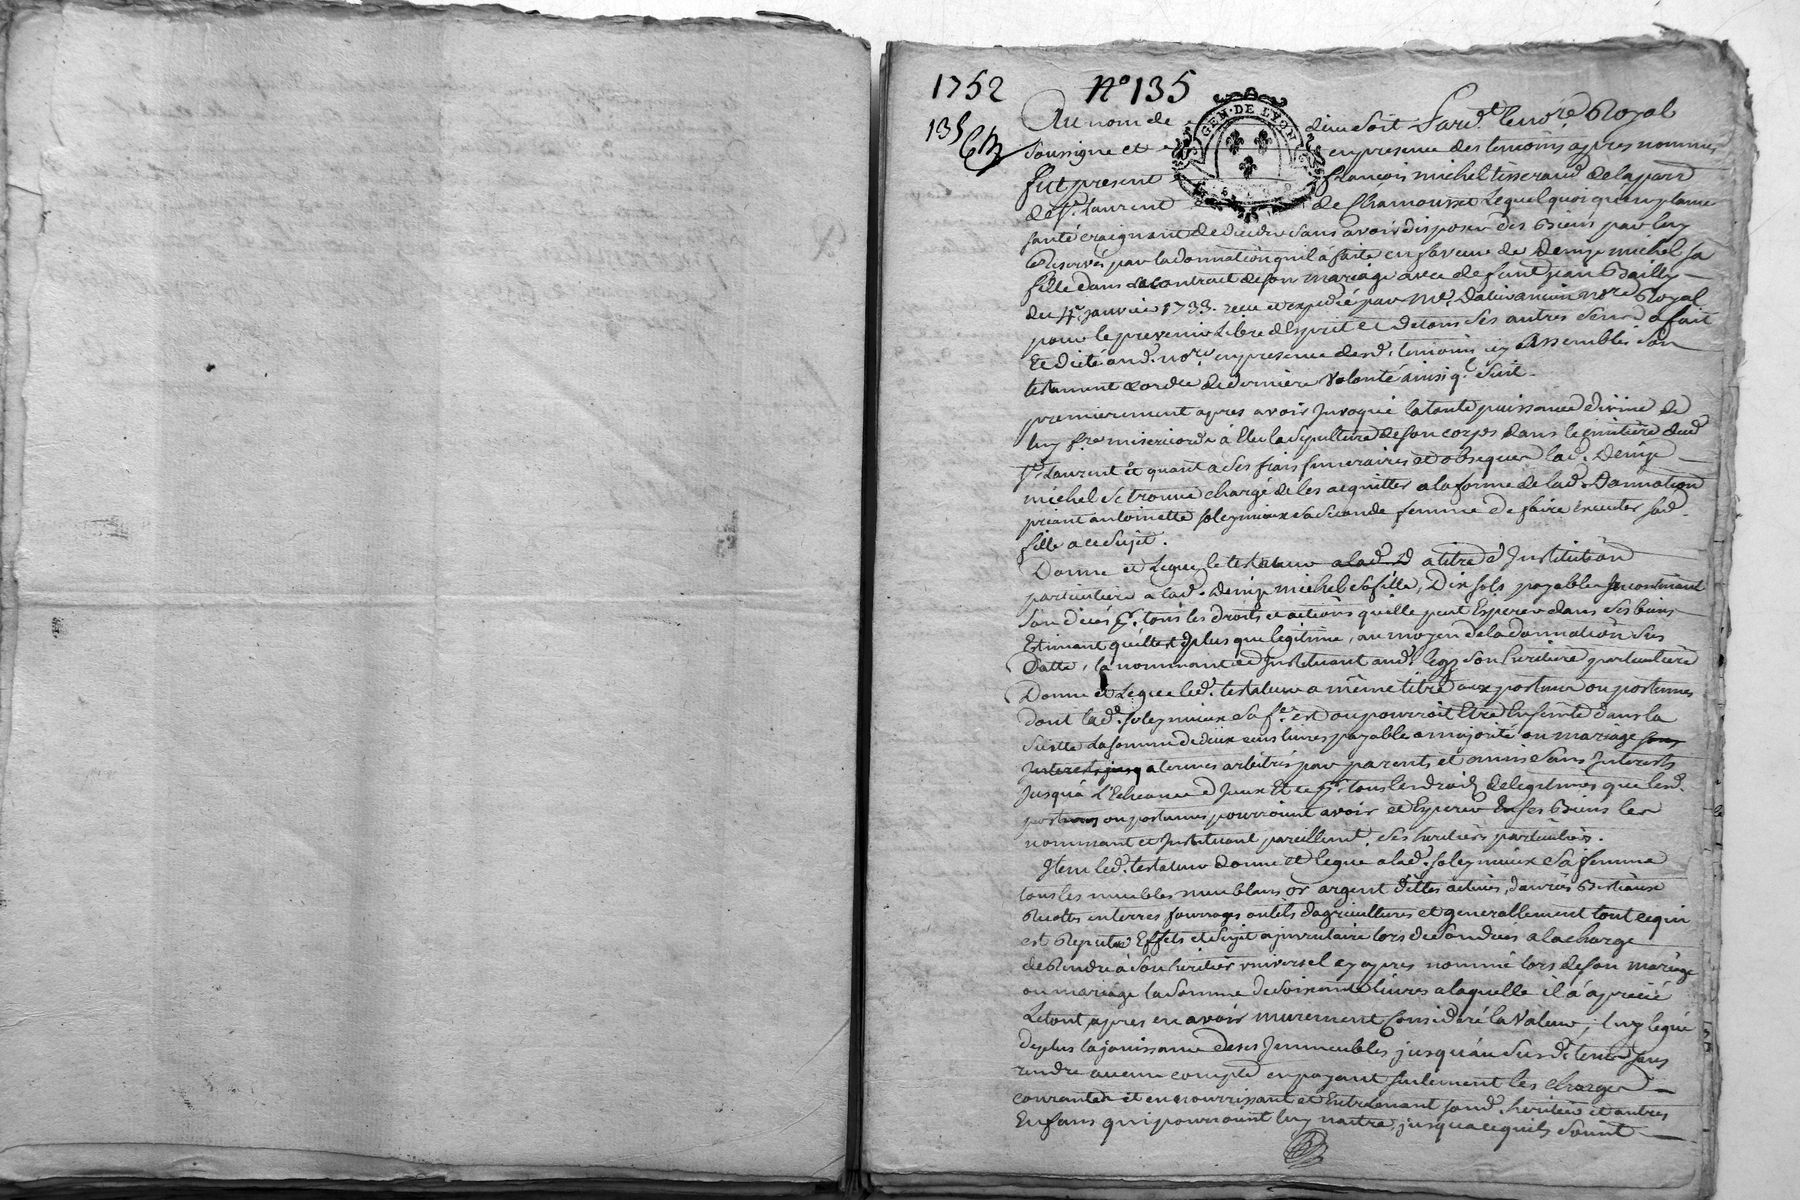 1752 N° 135
135
GEN. DE LYON
Au nom de dieu soit Pard.t le no.re Royal
soussigné et en presence des temoins apres nommes
fut present françois michel tisserand de la parr.
de S.t Laurent de Chamousset Lequel quoi qu'en plaine
santé craignant de deceder sans avoir disposer des Biens par luy
Reservés par la donnation qu'il a faite en faveur de Denize michel sa
fille dans le contrat de son mariage avec defunt jean Bailly
du 4.e janvier 1733. receu et expedié par M.e ancien no.re Royal
pour le prevenir Libre d'Esprit et de tous ses autres sens a fait
et dicté aud. no.re en presence desd. temoins icy Assemblés son
testament et ordre de derniere Volonté ainsi q.l suit
premierement apres avoir Invoqué la toute puissance divine de
luy f.re misericorde à Elu la sepulture de son corps dans le cimitiere dud.
S.t Laurent et quant a ses frais funeraires et obseques lad. Denize
michel se trouve chargé de les acquitter a la forme de lad. Donnation
priant antoinette soleymieux sa seconde femme de faire executer sad.
fille a ce sujet.
Donne et Legue le testateur a lad. D a titre d'Institution
particuliere a lad. Denize michel sa fille, Dix sols payables Incontinant
son décés p.r tous les droits et actions qu'elle peut Esperer dans ses biens
Estimant qu'elle est plus que legitime, au moyen de la donnation sus
Datte, la nommant et Instituant aud. legs son heritiere particuliere
Donne et Legue led. testateur a même titre aux postume ou postumes
dont lad. soleymieux sa f.e est ou pourroit Etre Enseinte dans la
suitte La somme de deux cens livres payable a majorité ou mariage sans
Interests jusq a termes arbitrés par parents et amis sans Interests
jusquà L'Echeance d'Iceux Et ce p.r tous les droits de legitimes que lesd.
postumes ou postumes pourroient avoir et Esperer En ses Biens les
nommant et Instituant pareillem.t ses heritiers particuliers.
Item led. testateur Donne et legue a lad. soleymieux sa femme
tous les meubles meublans or argent dettes actives, danrées Bestiaux
Recoltes en terres fourrages outils d'agricultures et generallement tout ce qui
est Reputé Effets et sujet a inventaire lors de son deces a la charge
de Rendre à son heritier universel cy apres nommé lors de son mariage
ou mariage la somme de soixante livres a laquelle il a aprecié
Le tout apres en avoir murement Consideré la Valeur, luy legue
de plus la jouissance de ses Immeubles jusqu'au susd.t terme sans
rendre aucun compte en payant seulement les charges
courantes et en nourrissant et Entretenant sond. heritier et autres
Enfans qui pourroient luy naitre, jusqu'a ce quils soient